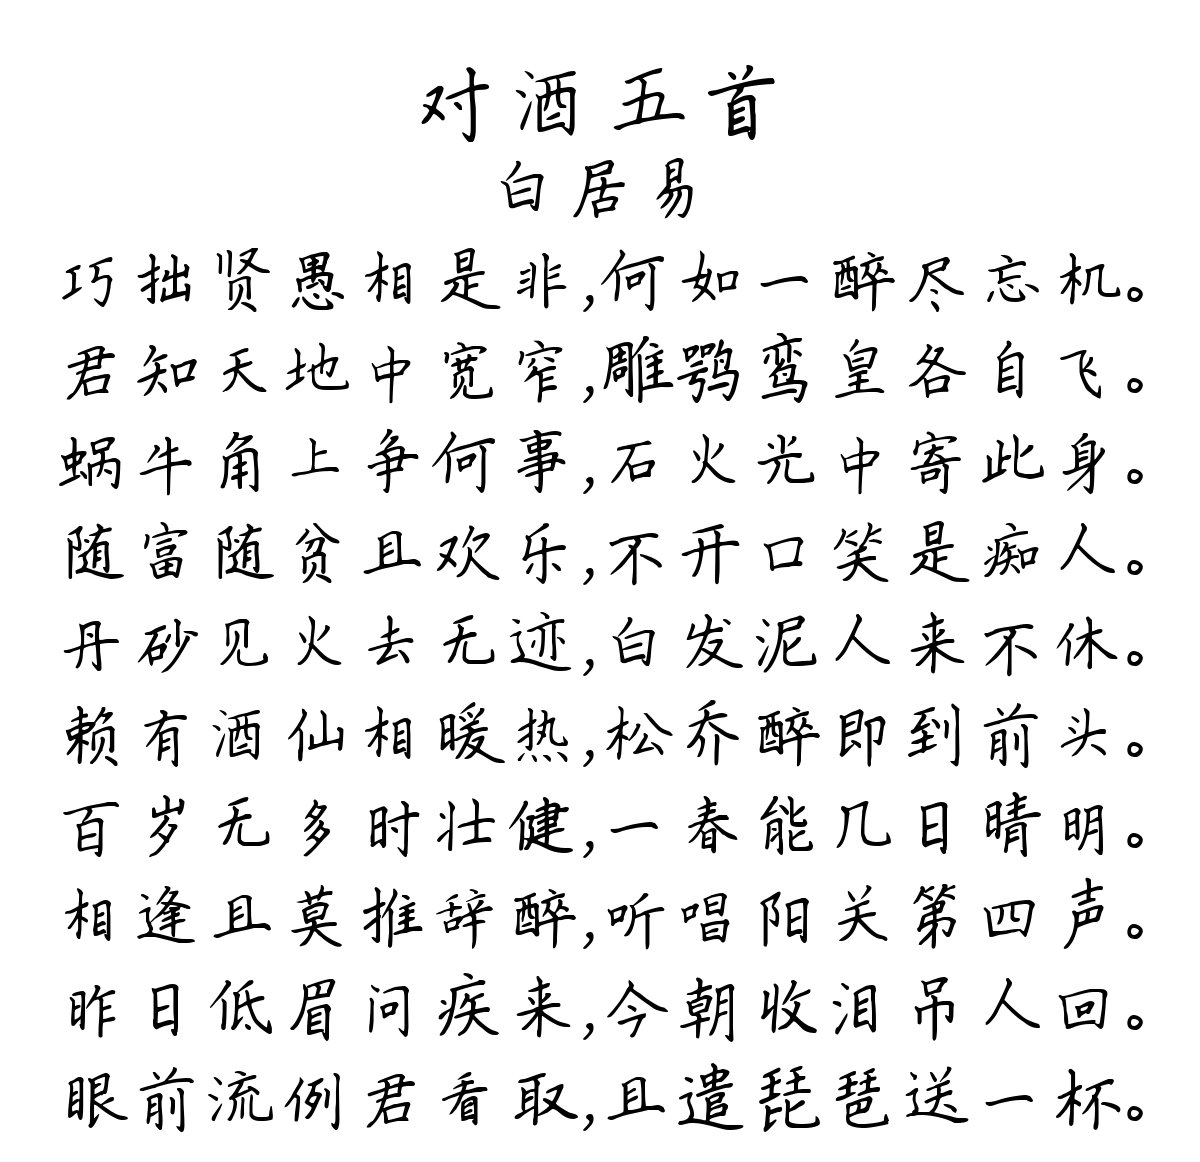 对酒五首
白居易
巧拙贤愚相是非,何如一醉尽忘机。
君知天地中宽窄,雕鹗鸾皇各自飞。
蜗牛角上争何事,石火光中寄此身。
随富随贫且欢乐,不开口笑是痴人。
丹砂见火去无迹,白发泥人来不休。
赖有酒仙相暖热,松乔醉即到前头。
百岁无多时壮健,一春能几日晴明。
相逢且莫推辞醉,听唱阳关第四声。
昨日低眉问疾来,今朝收泪吊人回。
眼前流例君看取,且遣琵琶送一杯。